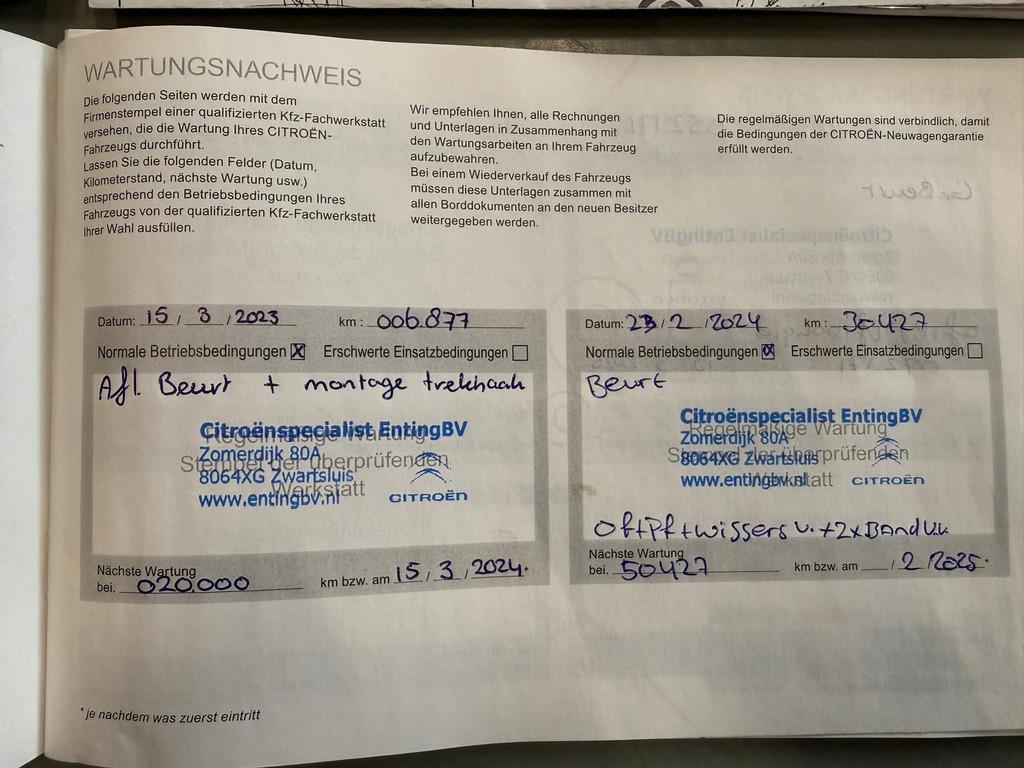 WARTUNGSNACHWEIS
Die folgenden Seiten werden mit dem
Firmenstempel einer qualifizierten Kfz-Fachwerkstatt
versehen, die die Wartung Ihres CITROËN-
Fahrzeugs durchführt.
Lassen Sie die folgenden Felder (Datum,
Kilometerstand, nächste Wartung usw.)
entsprechend den Betriebsbedingungen Ihres
Fahrzeugs von der qualifizierten Kfz-Fachwerkstatt
Ihrer Wahl ausfüllen.
Wir empfehlen Ihnen, alle Rechnungen
und Unterlagen in Zusammenhang mit
den Wartungsarbeiten an Ihrem Fahrzeug
aufzubewahren.
Bei einem Wiederverkauf des Fahrzeugs
müssen diese Unterlagen zusammen mit
allen Borddokumenten an den neuen Besitzer
weitergegeben werden.
Die regelmäßigen Wartungen sind verbindlich, damit
die Bedingungen der CITROËN-Neuwagengarantie
erfüllt werden.
Datum: 15 / 3 / 2023 km : 006.877
Normale Betriebsbedingungen Erschwerte Einsatzbedingungen
Afl. Beurt + montage trekhaak
Citroënspecialist EntingBV
Regelmäßige Wartung
Zomerdijk 80A
Stempel der überprüfenden
8064XG Zwartsluis
Werkstatt
www.entingbv.nl
CITROËN
Nächste Wartung
bei. 020.000 km bzw. am 15 / 3 / 2024.
Datum: 23 / 2 / 2024 km : 30427
Normale Betriebsbedingungen Erschwerte Einsatzbedingungen
Beurt
Citroënspecialist EntingBV
Regelmäßige Wartung
Zomerdijk 80A
Stempel der überprüfenden
8064XG Zwartsluis
Werkstatt
www.entingbv.nl
CITROËN
Of+Pf+wissers v.+2xBand
Nächste Wartung
bei. 50427 km bzw. am / 2 / 2025.
*je nachdem was zuerst eintritt